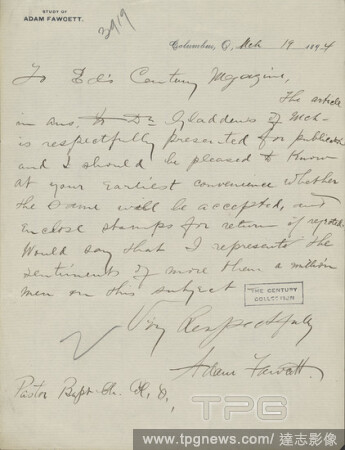 STUDY OF
ADAM FAWCETT.
3919
Columbus, O., Mch 19 1894
To Ed's Century Magazine,
The article
in ans. to Dr Gladden's of Mch
is respectfully presented for publication
and I should be pleased to know
at your earliest convenience whether
the same will be accepted, and
enclose stamps for return if rejected.
Would say that I represent the
sentiments of more than a million
men on this subject
THE CENTURY
COLLECTION
Very Respectfully
Adam Fawcett.
Pastor Bapt. Ch.
TPG
www.tpgnews.com / 達志影像